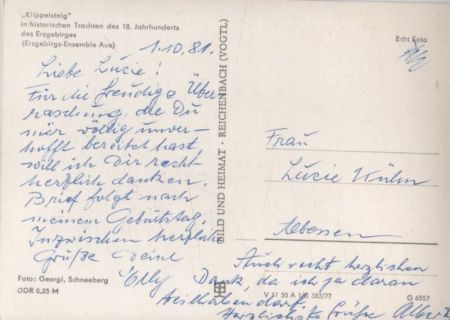 „Klippelsteig"
in historischen Trachten des 18. Jahrhunderts
des Erzgebirges
(Erzgebirgs-Ensemble Aue)
1.10.81.
Liebe Luzie!
Für die freudige Über-
raschung, die Du
mir völlig unver-
hofft bereitet hast,
will ich Dir recht
herzlich danken.
Brief folgt nach
meinem Geburtstag.
Inzwischen herzliche
Grüße Deine
Elly
Foto: Georgi, Schneeberg
ODR 0,25 M
BILD UND HEIMAT · REICHENBACH (VOGTL)
Echt Foto
Frau
Luzie Kühn
Auch recht herzlichen
Dank, da ich ja daran
teilhaben darf.
Herzlichste Grüße
V 11 50 A 1/B 385/77
G 6557